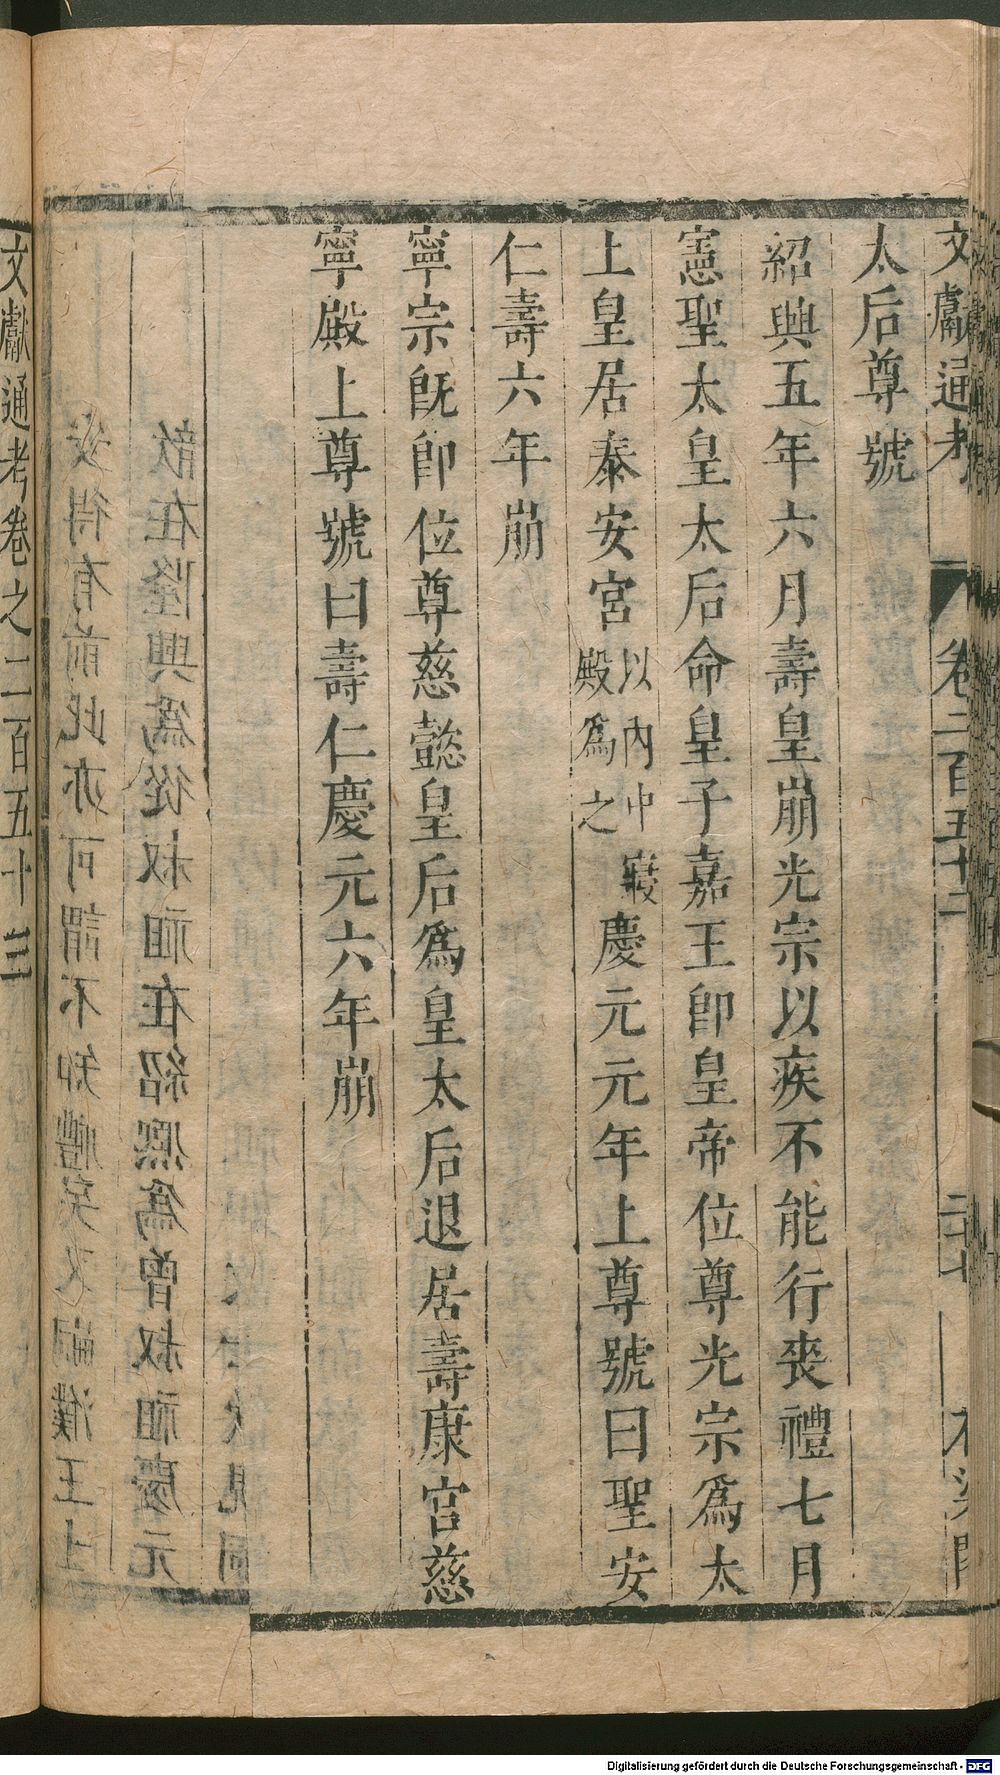 文獻通考 卷二百五十二
太后尊號
紹興五年六月壽皇崩光宗以疾不能行喪禮七月
憲聖太皇太后命皇子嘉王卽皇帝位尊光宗爲太
上皇居泰安宮以內中寢殿爲之慶元元年上尊號曰聖安
仁壽六年崩
寧宗旣卽位尊慈懿皇后爲皇太后退居壽康宮慈
寧殿上尊號曰壽仁慶元六年崩
文獻通考卷之二百五十三
Digitalisierung gefördert durch die Deutsche Forschungsgemeinschaft - DFG